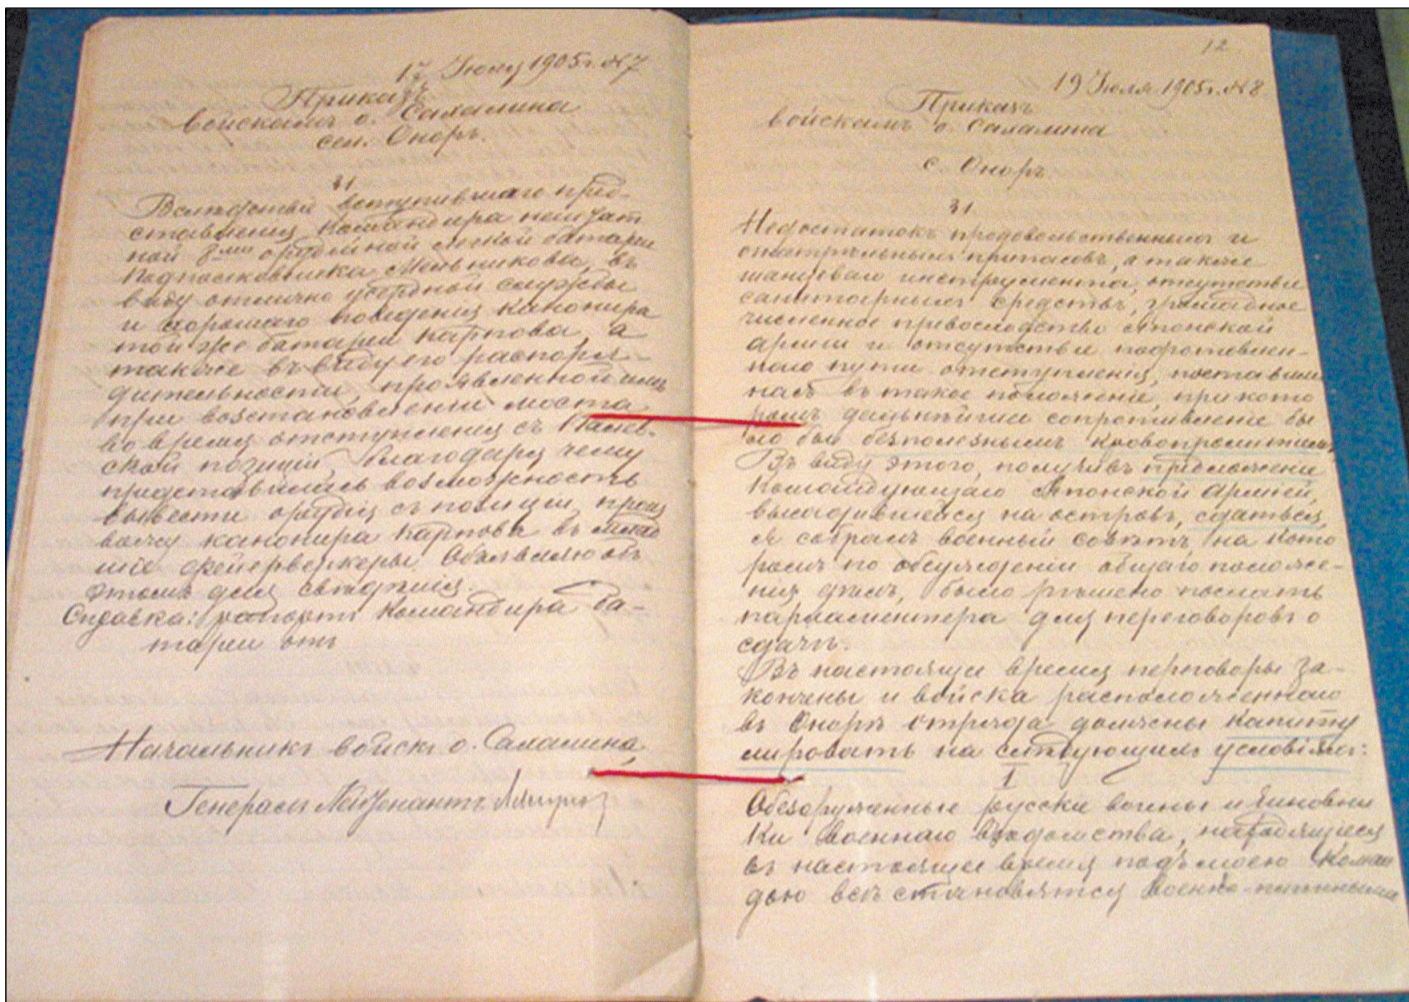 17 Июля 1905 г. №7
Приказъ
войскамъ о. Сахалина
сел. Оноръ.
§1
Вслѣдствіе вступившаго пред-
ставленія Командира нештат
ной 8ми орудейной легкой батареи
Подполковника Мельникова, въ
виду отлично усердной службы
и хорошаго поведенія канонира
той же батареи Карпова, а
также въ виду его распоря-
дительности, проявленной имъ
при возстановленіи моста
во время отступленія съ Палев-
ской позиціи, благодаря чему
представилась возможность
вывести орудія съ позиціи, произ
вожу канонира Карпова въ млад
шіе фейерверкеры. Объявляю объ
этомъ для свѣдѣнія.
Справка: рапортъ Командира ба-
тареи отъ
Начальникъ войскъ о. Сахалина,
Генералъ Лейтенантъ Ляпуновъ
12
19 Июля 1905 г. №8
Приказъ
войскамъ о. Сахалина
с. Оноръ.
§1.
Недостатокъ продовольственныхъ и
огнестрѣльныхъ припасовъ, а также
шанцеваго инструмента, отсутствіе
санитарныхъ средствъ, громадное
численное превосходство Японской
арміи и отсутствіе подготовлен-
наго пути отступленія, поставили
насъ въ такое положеніе, при кото
ромъ дальнѣйшее сопротивленіе бы
ло бы безполезнымъ кровопролитіемъ.
Въ виду этого, получивъ предложеніе
Командующаго Японской Арміей,
высадившейся на островъ, сдаться,
я собралъ военный совѣтъ, на кото
ромъ по обсужденіи общаго положе-
нія дѣлъ, было рѣшено послать
парламентера для переговоровъ о
сдачѣ.
Въ настоящее время переговоры за-
кончены и войска расположеннаго
въ Онорѣ отряда должны капиту
лировать на слѣдующихъ условіяхъ:
I
Обезоруженные русскіе воины и чиновни
ки военнаго вѣдомства, находящіеся
въ настоящее время подъ моею коман
дою всѣ становятся военно-плѣнными